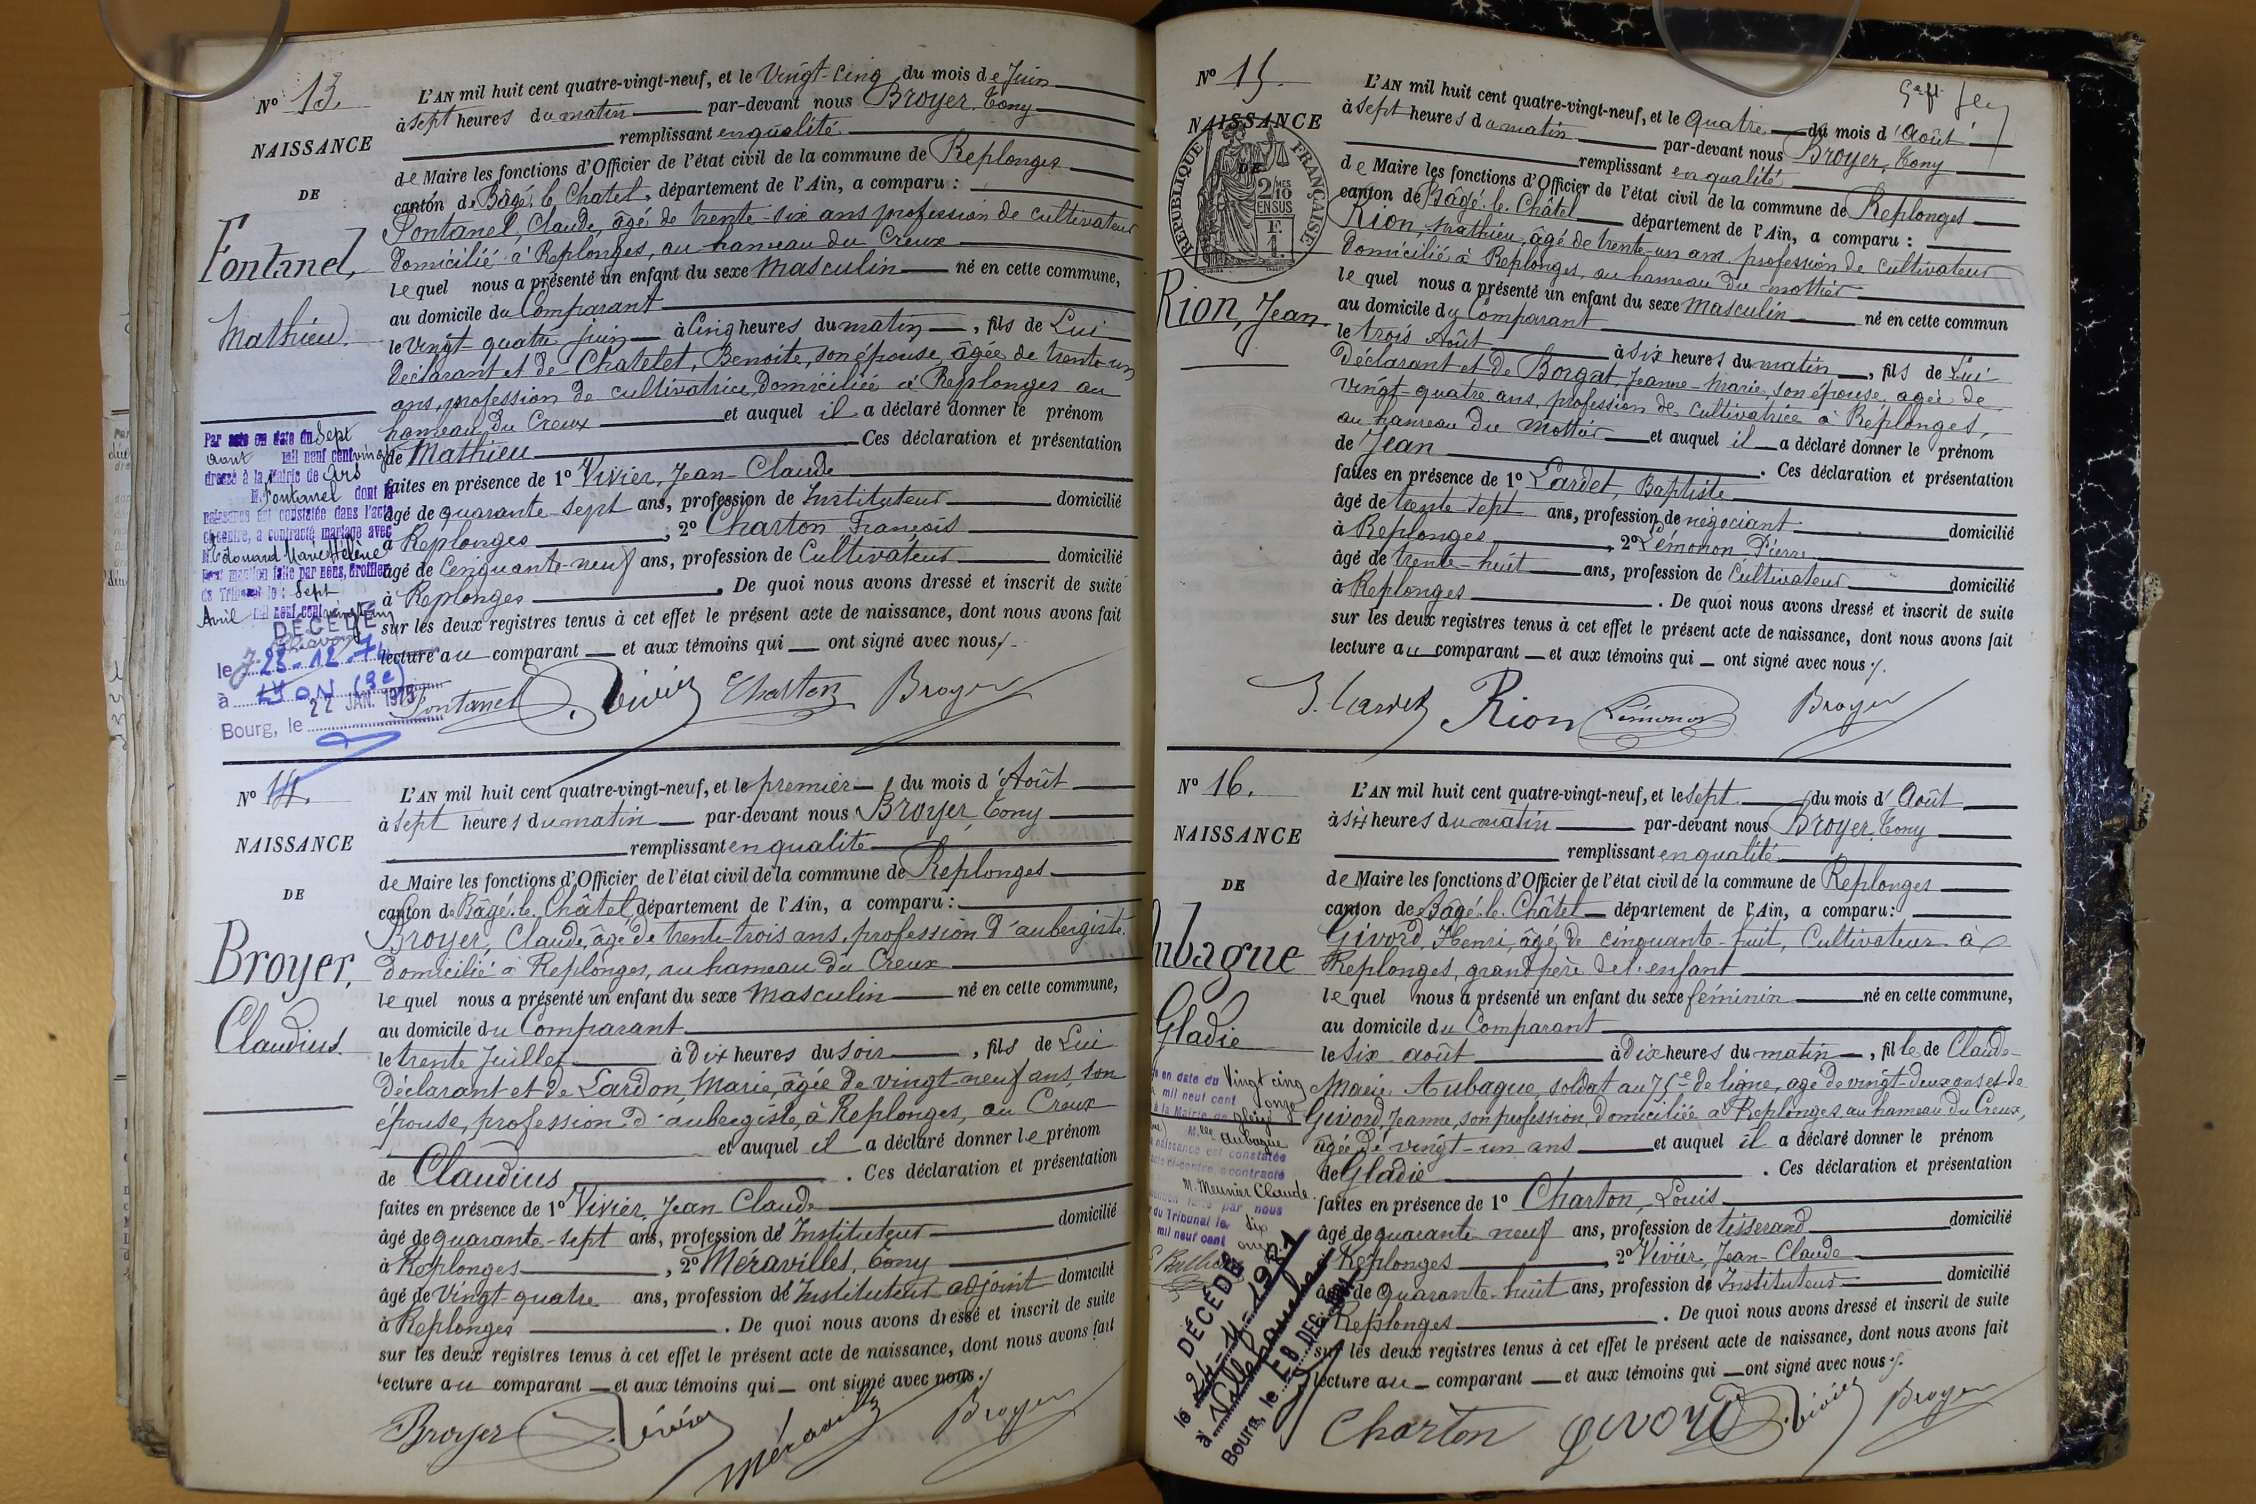 N° 13.
NAISSANCE
DE
Fontanel,
Mathieu.
L'AN mil huit cent quatre-vingt-neuf, et le Vingt-cinq du mois de Juin
à sept heures du matin par-devant nous Broyer, Tony
remplissant en qualité
de Maire les fonctions d'Officier de l'état civil de la commune de Replonges
canton de Bâgé-le-Chatel, département de l'Ain, a comparu :
Fontanel, Claude, âgé de trente-six ans profession de cultivateur
domicilié à Replonges, au hameau du Creux
lequel nous a présenté un enfant du sexe Masculin né en cette commune,
au domicile du Comparant
le vingt-quatre juin à Cinq heures du matin, fils de Lui
déclarant et de Chatelet, Benoite, son épouse, âgée de trente-un
ans, profession de cultivatrice, domiciliée à Replonges au
hameau du Creux et auquel il a déclaré donner le prénom
de Mathieu Ces déclaration et présentation
faites en présence de 1° Vivier, Jean-Claude
âgé de quarante-sept ans, profession de Instituteur domicilié
à Replonges, 2° Charton François
âgé de Cinquante-neuf ans, profession de Cultivateur domicilié
à Replonges. De quoi nous avons dressé et inscrit de suite
sur les deux registres tenus à cet effet le présent acte de naissance, dont nous avons fait
lecture au comparant et aux témoins qui ont signé avec nous.
Fontanel Vivier Charton Broyer
Par acte en date du Sept
Aout mil neuf cent vingt
dressé à la Mairie de Ars
M. Fontanel dont la
naissance est constatée dans l'acte
ci-contre, a contracté mariage avec
Mlle Edouard Marie Hélène
Pour mention faite par nous, Greffier
du Tribunal le : Sept
Avril mil neuf cent vingt un
DÉCÉDÉ
le 28-12-74
à LYON (3e)
Bourg, le 22 JAN. 1975
N° 14.
NAISSANCE
DE
Broyer,
Claudius.
L'AN mil huit cent quatre-vingt-neuf, et le premier du mois d'Août
à sept heures du matin par-devant nous Broyer, Tony
remplissant en qualité
de Maire les fonctions d'Officier de l'état civil de la commune de Replonges
canton de Bâgé-le-Châtel, département de l'Ain, a comparu :
Broyer, Claude, âgé de trente-trois ans, profession d'aubergiste
domicilié à Replonges, au hameau du Creux
lequel nous a présenté un enfant du sexe Masculin né en cette commune,
au domicile du Comparant
le trente Juillet à Dix heures du soir, fils de Lui
déclarant et de Lardon, Marie, âgée de vingt-neuf ans, son
épouse, profession d'aubergiste, à Replonges, au Creux
et auquel il a déclaré donner le prénom
de Claudius. Ces déclaration et présentation
faites en présence de 1° Vivier, Jean-Claude
âgé de quarante-sept ans, profession de Instituteur domicilié
à Replonges, 2° Méravilles, Tony
âgé de Vingt-quatre ans, profession de Instituteur adjoint domicilié
à Replonges. De quoi nous avons dressé et inscrit de suite
sur les deux registres tenus à cet effet le présent acte de naissance, dont nous avons fait
lecture au comparant et aux témoins qui ont signé avec nous.
Broyer Vivier Broyer
N° 15.
NAISSANCE
DE
RÉPUBLIQUE FRANÇAISE
2/10 MES
EN SUS
F.
1.
Rion, Jean.
L'AN mil huit cent quatre-vingt-neuf, et le Quatre du mois d'Août
à sept heures du matin par-devant nous Broyer, Tony
remplissant en qualité
de Maire les fonctions d'Officier de l'état civil de la commune de Replonges
canton de Bâgé-le-Châtel département de l'Ain, a comparu :
Rion, Mathieu, âgé de trente-un ans, profession de cultivateur
domicilié à Replonges, au hameau du Mottier
lequel nous a présenté un enfant du sexe Masculin né en cette commun
au domicile du Comparant
le trois Août à six heures du matin, fils de Lui
déclarant et de Borgat, Jeanne-Marie, son épouse, agée de
vingt-quatre ans, profession de cultivatrice à Replonges,
au hameau du Mottier et auquel il a déclaré donner le prénom
de Jean. Ces déclaration et présentation
faites en présence de 1° Lardet, Baptiste
âgé de trente sept ans, profession de négociant domicilié
à Replonges, 2° Lémonon Pierre
âgé de trente-huit ans, profession de Cultivateur domicilié
à Replonges. De quoi nous avons dressé et inscrit de suite
sur les deux registres tenus à cet effet le présent acte de naissance, dont nous avons fait
lecture au comparant et aux témoins qui ont signé avec nous.
B. Lardet Rion Lémonon Broyer
N° 16.
NAISSANCE
DE
Aubague
Gladie
L'AN mil huit cent quatre-vingt-neuf, et le Sept du mois d'Août
à six heures du matin par-devant nous Broyer, Tony
remplissant en qualité
de Maire les fonctions d'Officier de l'état civil de la commune de Replonges
canton de Bâgé-le-Châtel département de l'Ain, a comparu:
Givord, Henri, âgé de cinquante-huit, Cultivateur à
Replonges, grand père de l'enfant
lequel nous a présenté un enfant du sexe féminin né en cette commune,
au domicile du Comparant
le Six août à dix heures du matin, fille de Claude-
Marie Aubague, soldat au 75e de ligne, agé de vingt-deux ans et de
Givord, Jeanne, son profession, domiciliée à Replonges au hameau du Creux,
âgée de vingt-un ans et auquel il a déclaré donner le prénom
de Gladie. Ces déclaration et présentation
faites en présence de 1° Charton, Louis
âgé de quarante neuf ans, profession de tisserand domicilié
à Replonges, 2° Vivier, Jean-Claude
âgé de quarante-huit ans, profession de Instituteur domicilié
à Replonges. De quoi nous avons dressé et inscrit de suite
sur les deux registres tenus à cet effet le présent acte de naissance, dont nous avons fait
lecture au comparant et aux témoins qui ont signé avec nous.
Charton Givord Vivier Broyer
en date du Vingt cinq
mil neuf cent onze
à la Mairie de
Mlle Aubague
naissance est constatée
ci-contre a contracté
M. Meunier Claude
par nous
du Tribunal le dix
mil neuf cent onze
DÉCÉDÉ
le 24-11-1981
à Villefranche
Bourg, le DEC. 1981